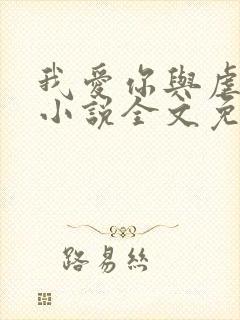 我愛你與虐
小說全文免
路易絲